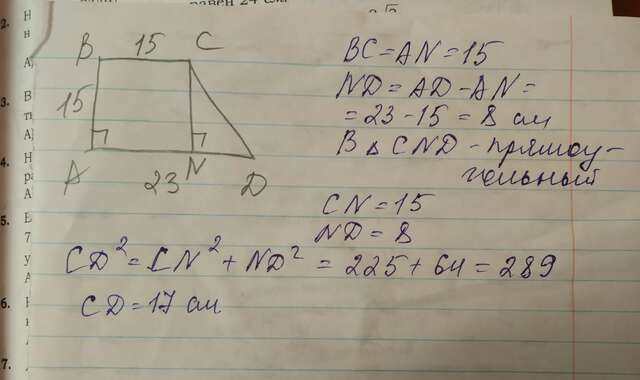 B 15 C
15
A 23 N D
BC = AN = 15
ND = AD - AN =
= 23 - 15 = 8 см
В △ CND - прямоу-
гольный
CN = 15
ND = 8
CD² = CN² + ND² = 225 + 64 = 289
CD = 17 см
2.
3.
4.
5.
6.
7.